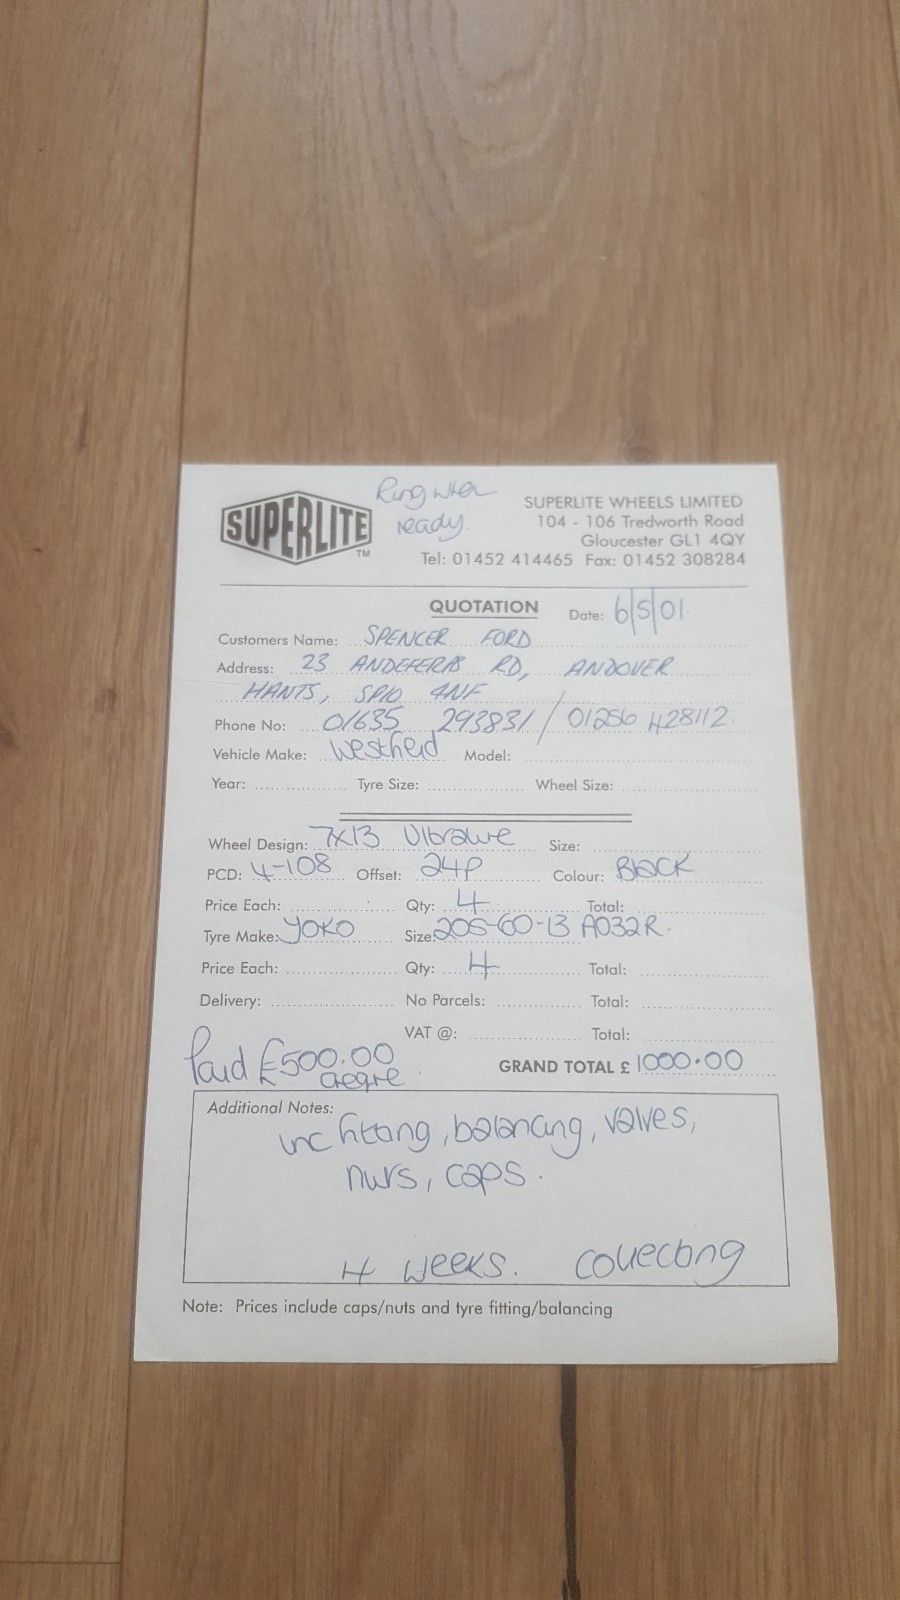 SUPERLITE TM
Ring when
ready.
SUPERLITE WHEELS LIMITED
104 - 106 Tredworth Road
Gloucester GL1 4QY
Tel: 01452 414465 Fax: 01452 308284
QUOTATION Date: 6/5/01
Customers Name: SPENCER FORD
Address: 23 ANDEFERAS RD, ANDOVER
HANTS, SP10 4NF
Phone No: 01635 293831 / 01256 428112
Vehicle Make: Westfield Model:
Year: Tyre Size: Wheel Size:
Wheel Design: 7x13 Ultralite Size:
PCD: 4-108 Offset: 24P Colour: Black
Price Each: Qty: 4 Total:
Tyre Make: YOKO Size: 205-60-13 A032R
Price Each: Qty: 4 Total:
Delivery: No Parcels: Total:
VAT @: Total:
Paid £500.00
GRAND TOTAL £ 1000.00
cheque
Additional Notes:
inc fitting, balancing, valves,
nuts, caps.
4 weeks. collecting
Note: Prices include caps/nuts and tyre fitting/balancing